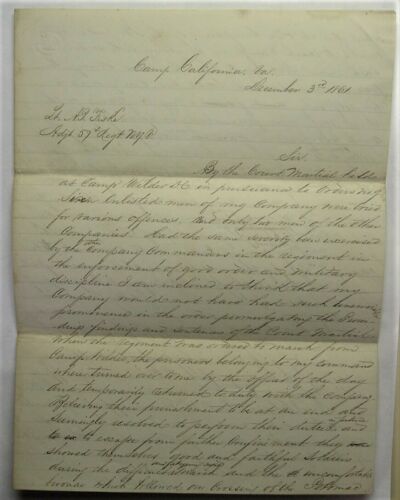 Camp California, Va.
December 3rd 1861
Lt. N.B. Fiske
Adjt 57th Regt N.Y.V.
Sir.
By the Court Martial he
at Camp Wilder D.C. in pursuance to Orders No 9
Six enlisted men of my Company were tried
for various offences. And only two men of the other
Companies. Had the same severity been exercised
by the Company Commanders in the regiment in
the enforcement of good order and Military
discipline I am inclined to think that my
Company would not have had such
prominence in the order promulgating the
findings and sentences of the Court Martial.
When the regiment was ordered to march from
Camp Wilder, the prisoners belonging to my command
where turned over to me by the officer of the day
And temporarily returned to duty with the Company
Believing their punishment to be at an end and
Seemingly resolved to perform their duties and
to escape from further Confinement they
showed themselves good and faithful Soldiers
during the march and the uncomfortable
bivouac which followed our Crossing of the Potomac